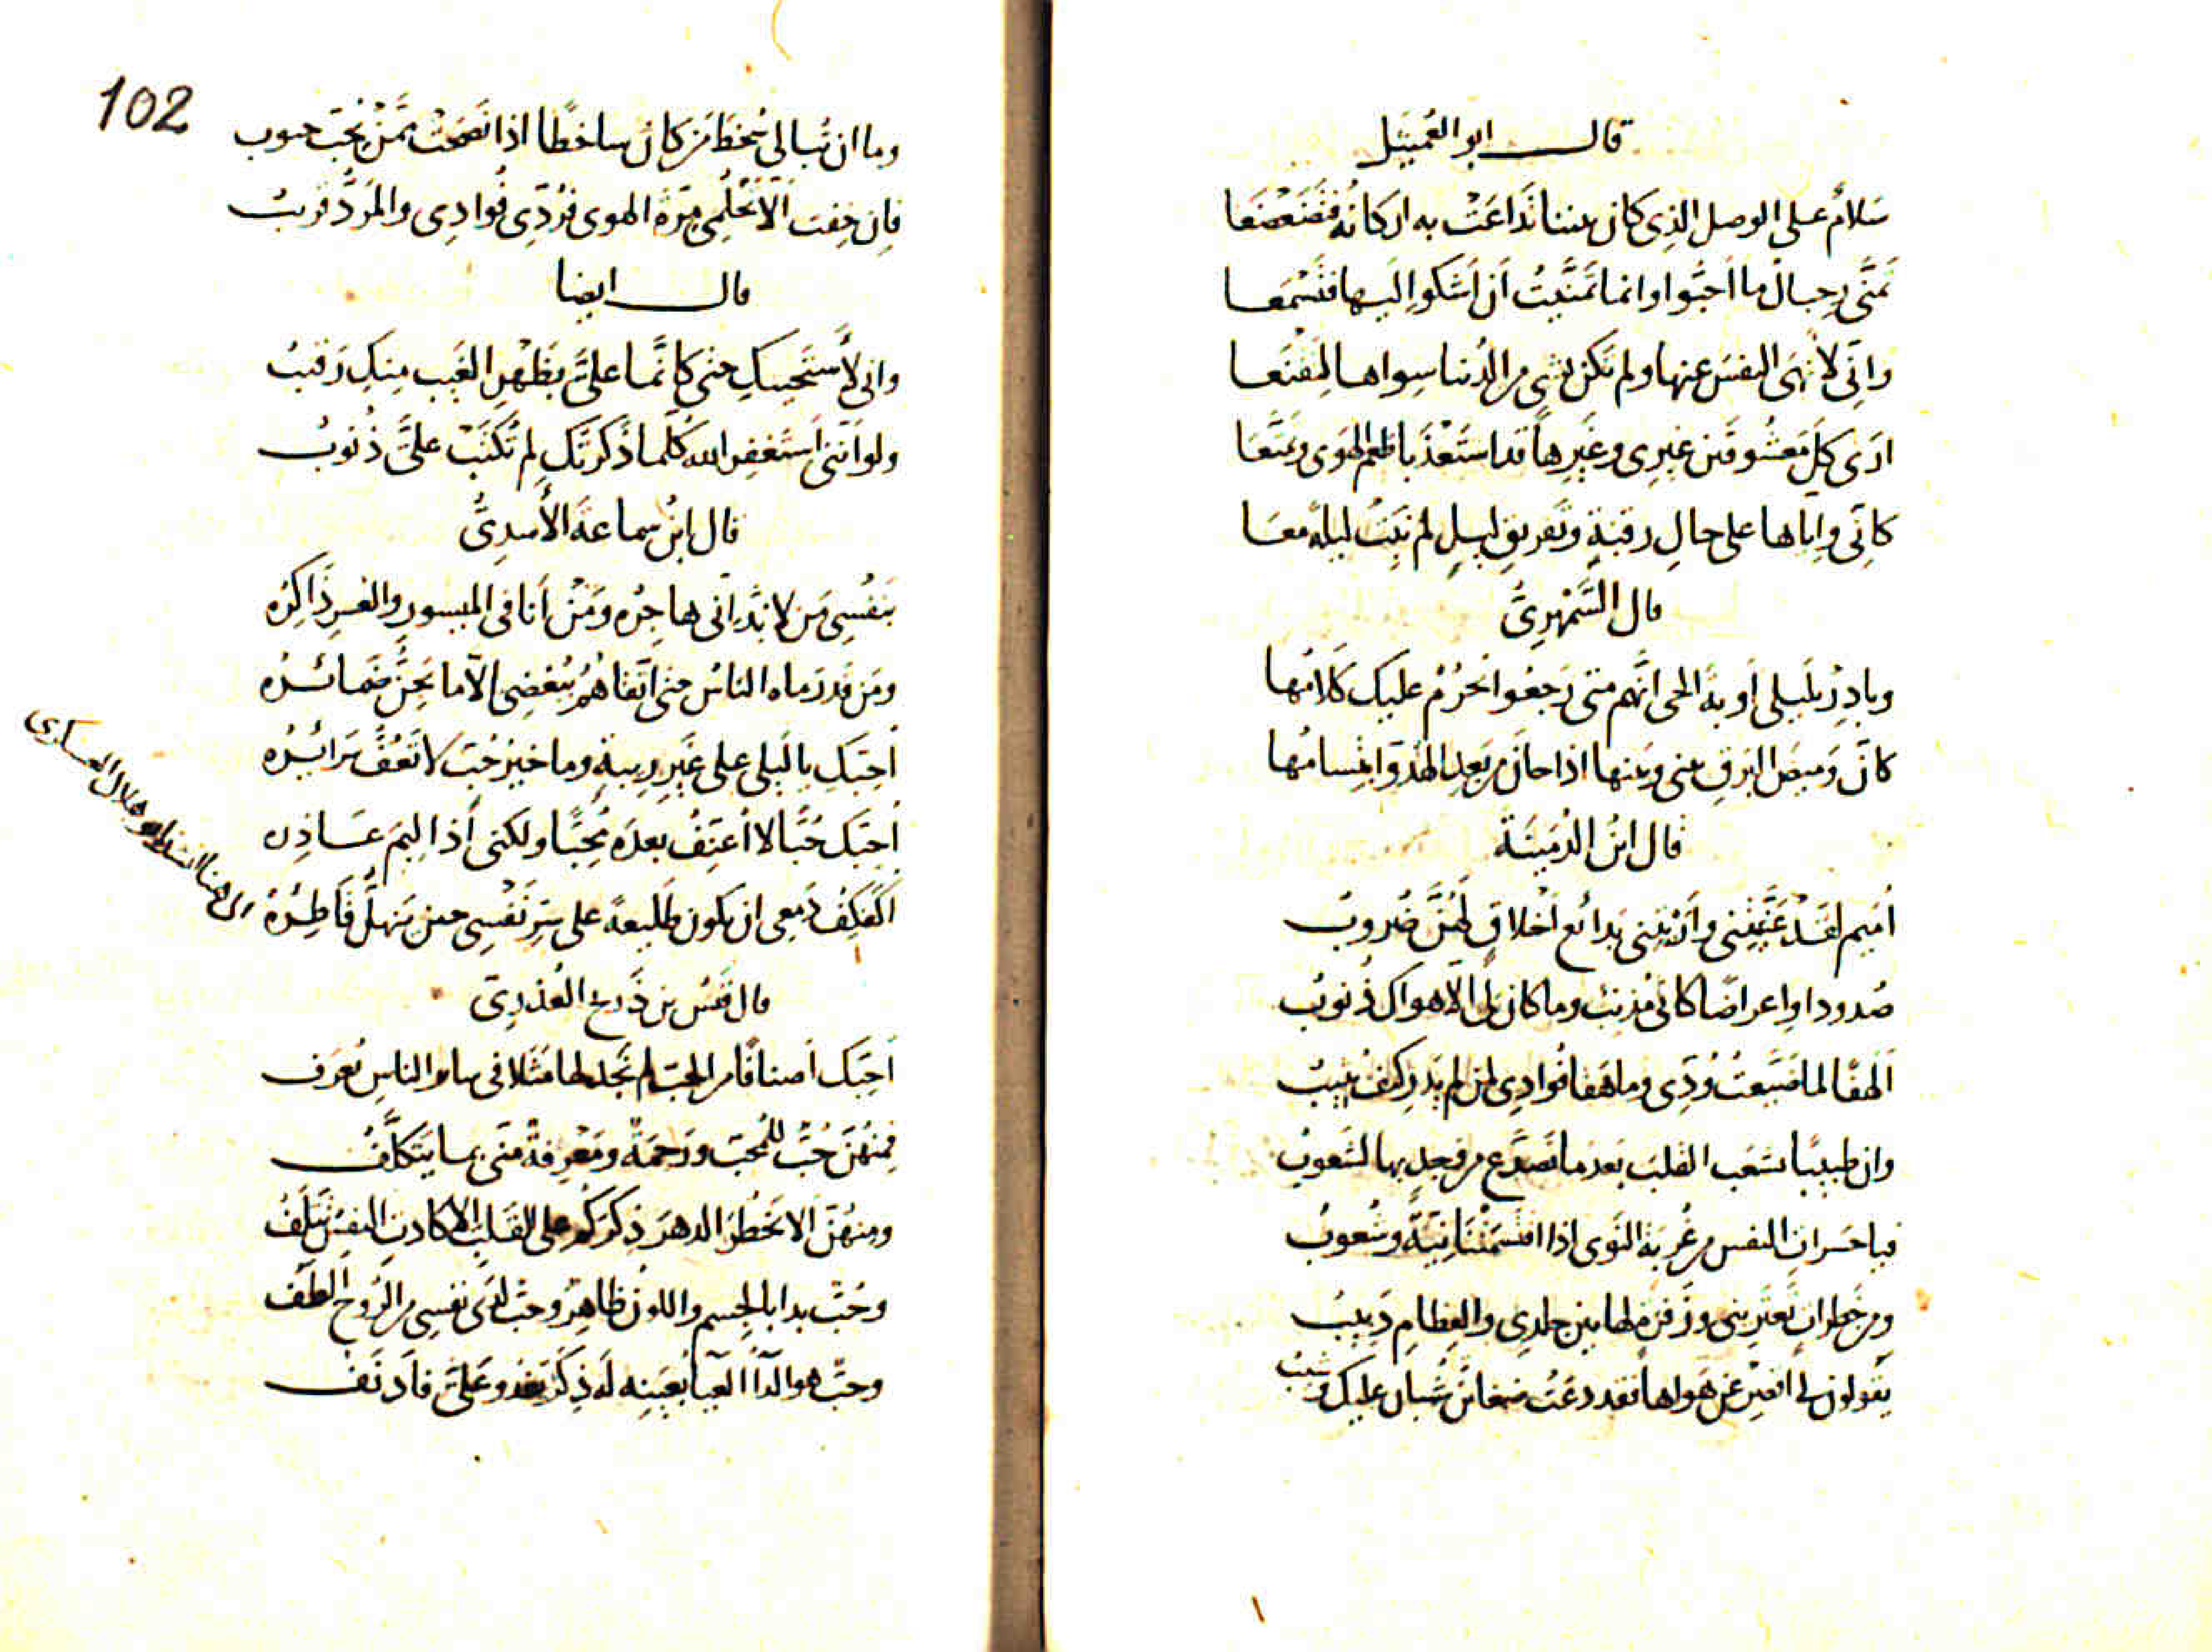 قال ابو العميثل
سَلامٌ على الوصل الذِي كان بيننا تَداعَتْ به اركانُه فتَضَعْضَعا
تَمنَّى رِجالٌ ما اَحبُّوا وانما تَمنَّيتُ اَن اَشكو اِليها فتَسْمَعا
واِنّى لاَنْهَى النفسَ عنها ولم تكن بشىءٍ من الدُنيا سِواها لِتَقْنَعا
ارَى كلَّ مَعشُوقَين غيرِى وغَيرِها قد استَعْذَبا طعم الهَوى وتمتَّعَا
كانّى وايّاها على حالِ رِقبَةٍ وتَفريقِ ليلٍ لم نَبِتْ ليلةً معَا
قال السَّمْهَرِىُّ
وبادِرْ بلَيلى اَوبةَ الحى اِنَّهم متى رَجعُوا يَحْرُمْ عليك كَلامُها
كانَّ وَميضَ البَرقِ بينى وبَينها اذا حانَ من بَعدِ الهُدُوّ ابتِسامُها
قال ابنُ الدُمَينَة
اُميم لقَدْ عَنَّيتِنى واَرَيْتِنى بَدائع اَخلاقٍ لَهُنَّ ضُروبُ
صُدودا واِعراضًا كانى مُذنِبٌ وما كان لى الاّ هواكِ ذُنوبُ
اَلَهْفًا لما ضَيَّعتُ وُدّى وما هَفا فُوادِى لمن لم يَدرِ كيفَ يُثيبُ
وان طبيبًا يشعَب القلبَ بعدَما تصَدَّع من وجدٍ بها لشَعوبُ
فيا حَسَراتِ النفس من غُربَةِ النَوى اذا اقتَسَمَتْنَا نِيَّةٌ وشُعوبُ
ومن خَطراتٍ تَعتَرِينى وزَفرَةٍ لها بين جلدى والعِظامِ دَبيبُ
يَقولون لى اَقصِرْ عن هَواها فقد وَعَتْ ضغائنَ شُبانٌ عليك وشيبُ
102
وما ان تُبالى سُخطَ مَن كان ساخطًا اذا نَصحَتْ ممَّنْ تُحبُّ جيوب
فاِن خِفتِ اَلاّ تُحكِمى مِرّةَ الهوى فرُدّى فُوادِى والمَرَدُّ قريبُ
قال ايضا
وانى لاَستَحييكِ حتى كانَّما علىَّ بظَهْرِ الغَيب منكِ رَقيبُ
ولو اَنّنى اَستَغفِر الله كلَّما ذكَرتُكِ لم تُكتَبْ علىَّ ذُنوبُ
قال ابنُ سماعةَ الأسدِىُّ
بنَفسِى مَن لا بُدّ اِنّى هاجِرُه ومَنْ اَنا فى الميسورِ والعسرِ ذاكِرُه
ومَن قد رَماه الناسُ حتى اتّقاهُمُ ببُغضِى الاّ ما تُجِنُّ ضَمائرُه
اُحِبّكِ يا لَيلى على غَيرِ رِيبةٍ وما خيرُ حُبٍّ لا تَعُفُّ سَرائرُه
اُحبّك حُبًّا لا اُعَنِّفُ بعدَه مُحِبًّا ولكنى اذا لِيمَ عَاذِره
اُكَفكِفُ دَمعِى ان يكون طَليعةً على سِرِّ نَفْسِى حين يَنهلُّ قاطِرُهْ
من هنا ابو هلال العسكرى
قال قَيسُ بن ذَريح العُذرِىّ
اُحِبّك اَصنافًا من الحبّ لم تَجد لها مَثَلاً فى سائر الناسِ يُعرَف
فمنهُنَّ حُبٌّ للمُحبّ ورَحمَةٌ ومَعْرِفةٌ منّى بما يتَكلَّفُ
ومنهُنَّ اَلا يَخطُرَ الدهرَ ذِكركُم على القَلبِ الا كادتِ النفسُ تَتلَفُ
وحُبٌّ بدا بالجِسم واللون ظاهِرٌ وحبٌّ لدَى نفسِى من الرُوح الطَف
وحبٌّ هو الدآ العَيا بعَينه له ذِكَرٌ تَغدو عَلىَّ فاَدنَف